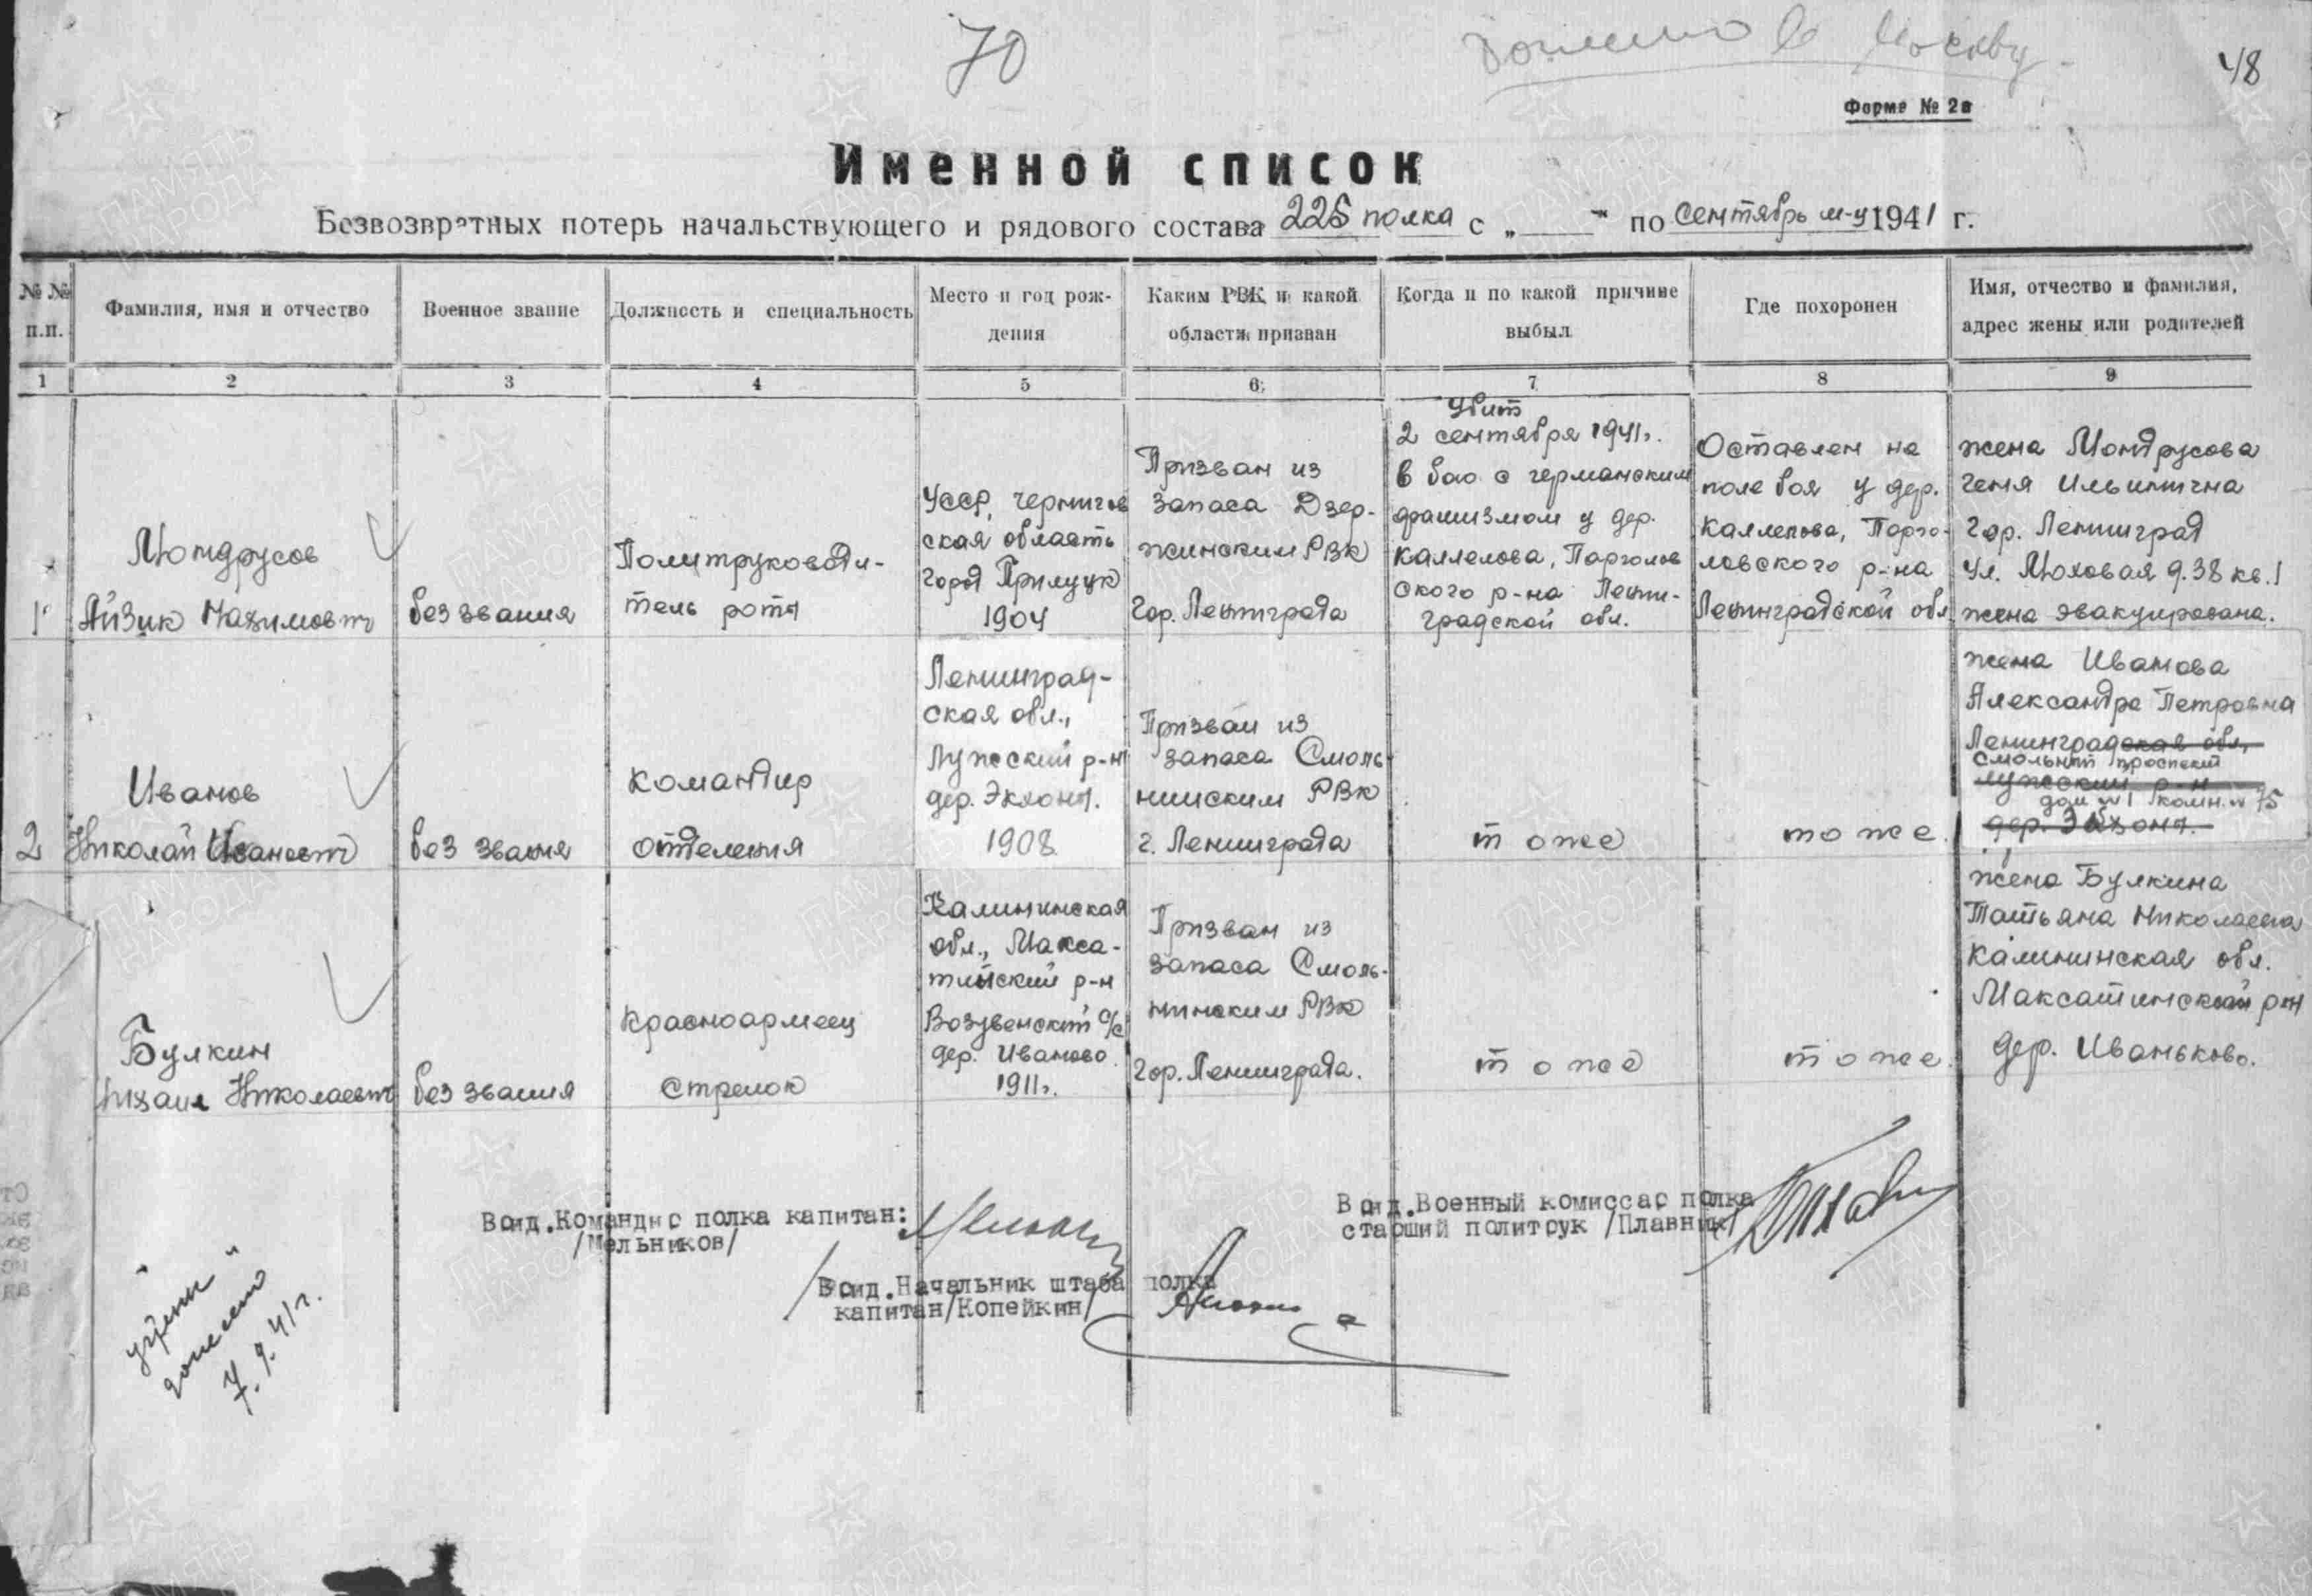 70
48
Форма № 2а
Именной список
Безвозвратных потерь начальствующего и рядового состава 225 полка с „ " по сентябрь м-ц 1941 г.
№ № п.п.
Фамилия, имя и отчество
Военное звание
Должность и специальность
Место и год рождения
Каким РВК и какой области призван
Когда и по какой причине выбыл
Где похоронен
Имя, отчество и фамилия, адрес жены или родителей
1 2 3 4 5 6 7 8 9
1
Мондрусов
Айзик
без звания
Политруководи-
тель роты
УССР, чернигов
ская область
город Прилуки
1904
Призван из
запаса Дзер-
жинским РВК
Гор. Ленинграда
Убит
2 сентября 1941г.
в бою с германским
фашизмом у дер.
Каллелова, Парголов
ского р-на Ленин-
градской обл.
Оставлен на
поле боя у дер.
Каллелова, Парго-
ловского р-на
Ленинградской обл.
жена Мондрусова
Геня Ильинична
Гор. Ленинград
Ул. Моховая д.38 кв.1
жена эвакуирована.
2
Иванов
Николай Иванович
без звания
командир
отделения
Ленинград-
ская обл.,
Лужский р-н
дер.
1908
Призван из
запаса Смоль
нинским РВК
г. Ленинграда
то же
то же
жена Иванова
Александра Петровна
Ленинградская обл,
Смольный проспект
Лужский р-н
дом №1 комн.№ 75
дер.
Булкин
Михаил Николаевич
без звания
Красноармеец
стрелок
Калининская
обл., Макса-
тинский р-н
с/с
дер. Иваново
1911г.
Призван из
запаса Смоль-
нинским РВК
Гор. Ленинграда.
то же
то же
жена Булкина
Татьяна Николаевна
Калининская обл.
Максатинский р-н
дер. Иваньково.
Врид.Командир полка капитан:
/Мельников/
Врид.Военный комиссар полка
старший политрук /Плавник/
Врид.Начальник штаба полка
капитан/Копейкин/
донесено
7.9.41г.
ПАМЯТЬ
НАРОДА